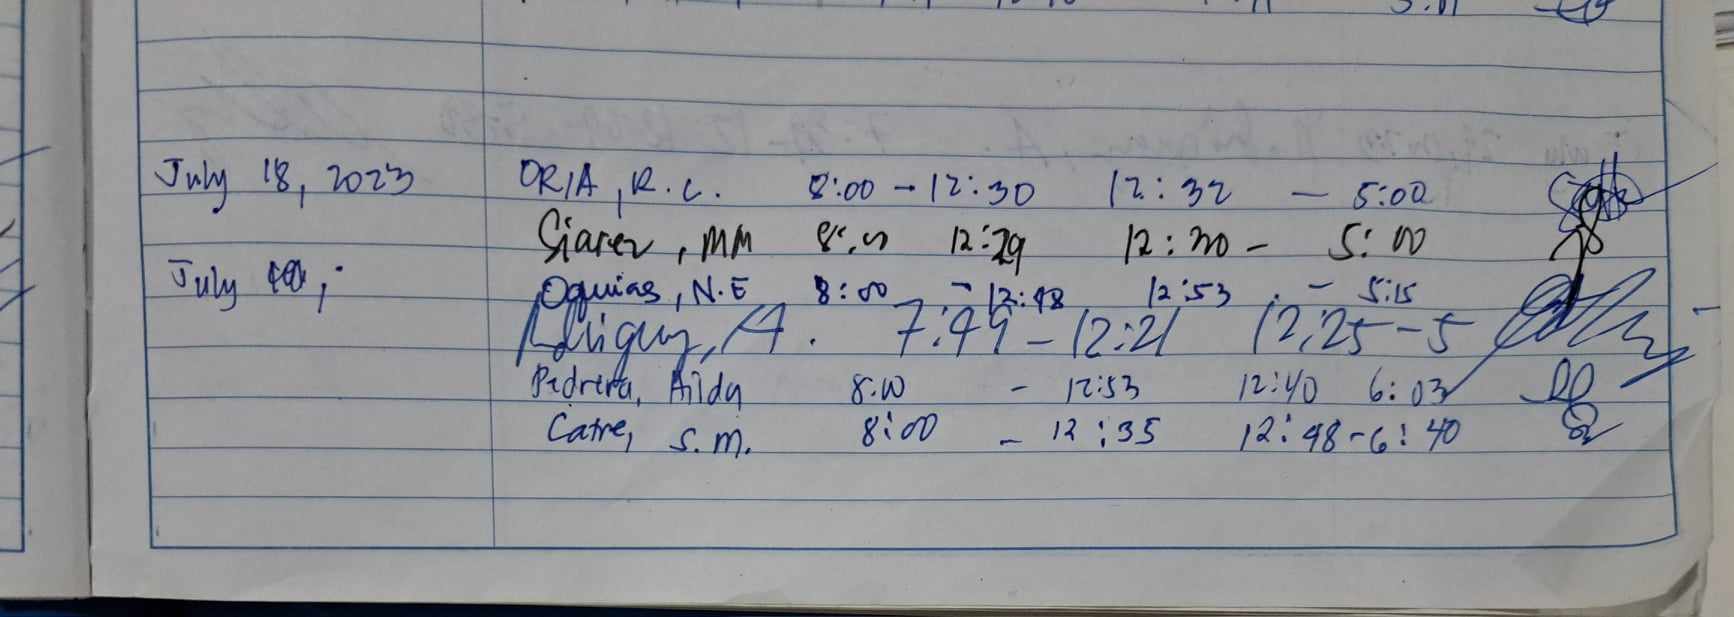 July 18, 2023 ORIA, R.C. 8:00 - 12:30 12:32 - 5:00
Siarez, MM 8:00 12:29 12:30 - 5:00
July Oquias, N.E 8:00 - 12:48 12:53 - 5:15
A. 7:49 - 12:21 12:25 - 5
Pedrera, Ailda 8:00 - 12:53 12:40 6:03
Catre, S.M. 8:00 - 12:35 12:48 - 6:40